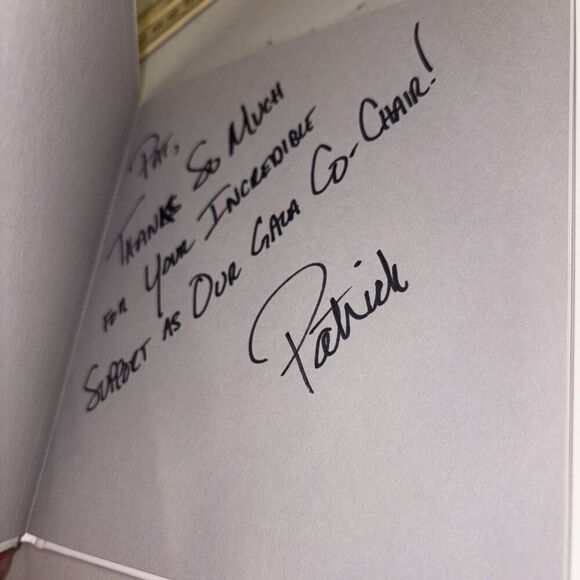 Pat,
Thanks So Much
for Your Incredible
Support as Our Gala Co-Chair!
Patrick